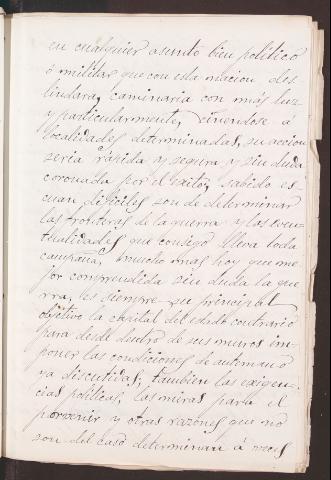 en cualquier asunto bien politico
ó militar que con esta nacion des
lindara, caminaria con más luz
y particularmente, ciñendose á
localidades determinadas, su accion
seria rápida y segura y sin duda
coronada por el exito; sabido es
cuan dificiles son de determinar
las fronteras de la guerra y las even
tualidades que consigo lleva toda
campaña, mucho mas hoy que me
jor comprendida sin duda la gue
rra, es siempre su principal
objetivo la capital del estado contrario
para desde dentro de sus muros im
poner las condiciones de antemano
ya discutidas; tambien las exigen
cias politicas, las miras para el
porvenir y otras razones que no
son del caso determinan á veces